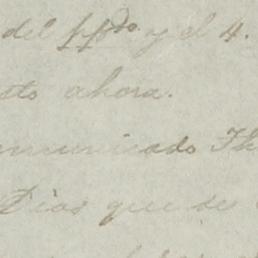 del ppdo. y el 4.
sto ahora.
municado Th
Dios que se